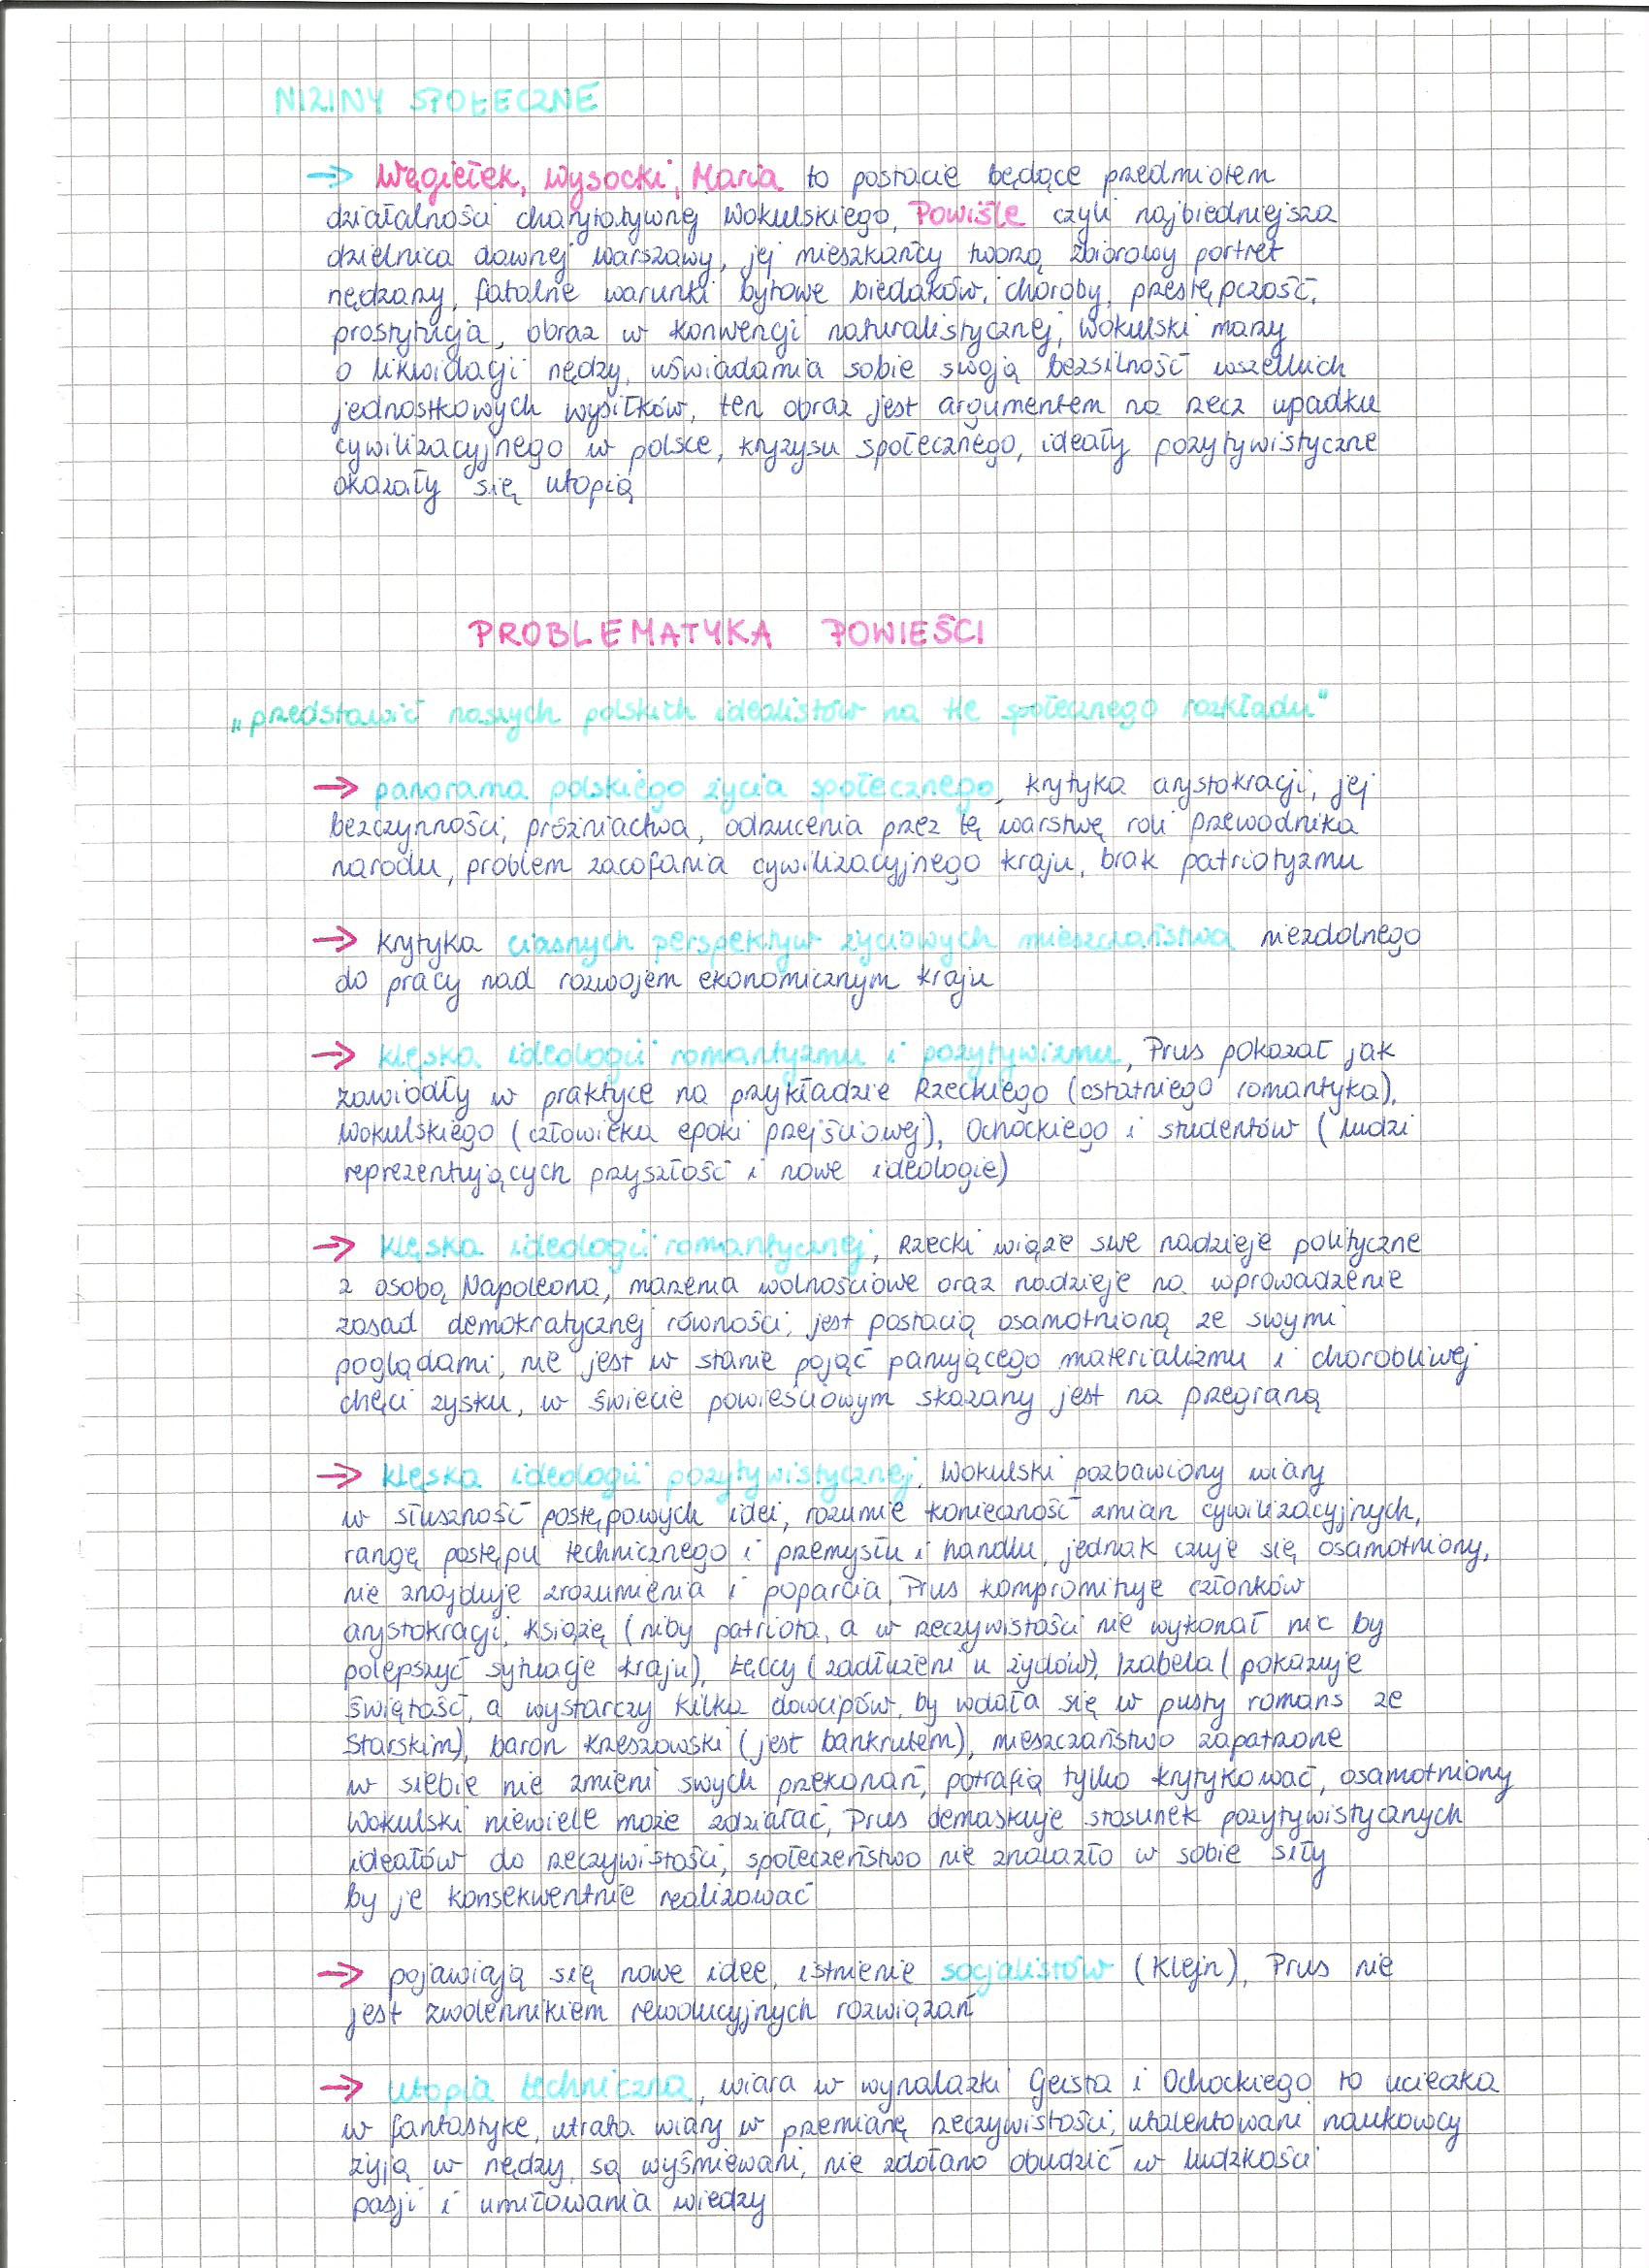 NIZINY SPOŁECZNE
→ Węgiełek, Wysocki, Maria to postacie będące przedmiotem
działalności charytatywnej Wokulskiego, Powiśle czyli najbiedniejsza
dzielnica dawnej Warszawy, jej mieszkańcy tworzą zbiorowy portret
nędzarzy, fatalne warunki bytowe biedaków, choroby, przestępczość,
prostytucja, obraz w konwencji naturalistycznej, Wokulski marzy
o likwidacji nędzy, uświadamia sobie swoją bezsilność wszelkich
jednostkowych wysiłków, ten obraz jest argumentem na rzecz upadku
cywilizacyjnego w polsce, kryzysu społecznego, ideały pozytywistyczne
okazały się utopią
PROBLEMATYKA POWIEŚCI
„przedstawić naszych polskich idealistów na tle społecznego rozkładu"
→ panorama polskiego życia społecznego, krytyka arystokracji, jej
bezczynności, próżniactwa, odrzucenia przez tę warstwę roli przewodnika
narodu, problem zacofania cywilizacyjnego kraju, brak patriotyzmu
→ krytyka ciasnych perspektyw życiowych mieszczaństwa niezdolnego
do pracy nad rozwojem ekonomicznym kraju
→ klęska ideologii romantyzmu i pozytywizmu, Prus pokazał jak
zawiodły w praktyce na przykładzie Rzeckiego (ostatniego romantyka),
Wokulskiego (człowieka epoki przejściowej), Ochockiego i studentów (ludzi
reprezentujących przyszłość i nowe ideologie)
→ klęska ideologii romantycznej, Rzecki wiąże swe nadzieje polityczne
z osobą Napoleona, marzenia wolnościowe oraz nadzieje na wprowadzenie
zasad demokratycznej równości, jest postacią osamotnioną ze swymi
poglądami, nie jest w stanie pojąć panującego materializmu i chorobliwej
chęci zysku, w świecie powieściowym skazany jest na przegraną
→ klęska ideologii pozytywistycznej, Wokulski pozbawiony wiary
w słuszność postępowych idei, rozumie konieczność zmian cywilizacyjnych,
rangę postępu technicznego i przemysłu i handlu, jednak czuje się osamotniony,
nie znajduje zrozumienia i poparcia, Prus kompromituje członków
arystokracji, Książę (niby patriota, a w rzeczywistości nie wykonał nic by
polepszyć sytuację kraju), Łęccy (zadłużeni u żydów), Izabela (pokazuje
świętość, a wystarczy kilka dowcipów, by wdała się w pusty romans ze
Starskim), baron Krzeszowski (jest bankrutem), mieszczaństwo zapatrzone
w siebie nie zmieni swych przekonań, potrafią tylko krytykować, osamotniony
Wokulski niewiele może zdziałać, Prus demaskuje stosunek pozytywistycznych
ideałów do rzeczywistości, społeczeństwo nie znalazło w sobie siły
by je konsekwentnie realizować
→ pojawiają się nowe idee, istnienie socjalistów (Klejn), Prus nie
jest zwolennikiem rewolucyjnych rozwiązań
→ utopia techniczna, wiara w wynalazki Geista i Ochockiego to ucieczka
w fantastykę, utrata wiary w przemianę rzeczywistości, utalentowani naukowcy
żyją w nędzy, są wyśmiewani, nie zdołano obudzić w ludzkości
pasji i umiłowania wiedzy